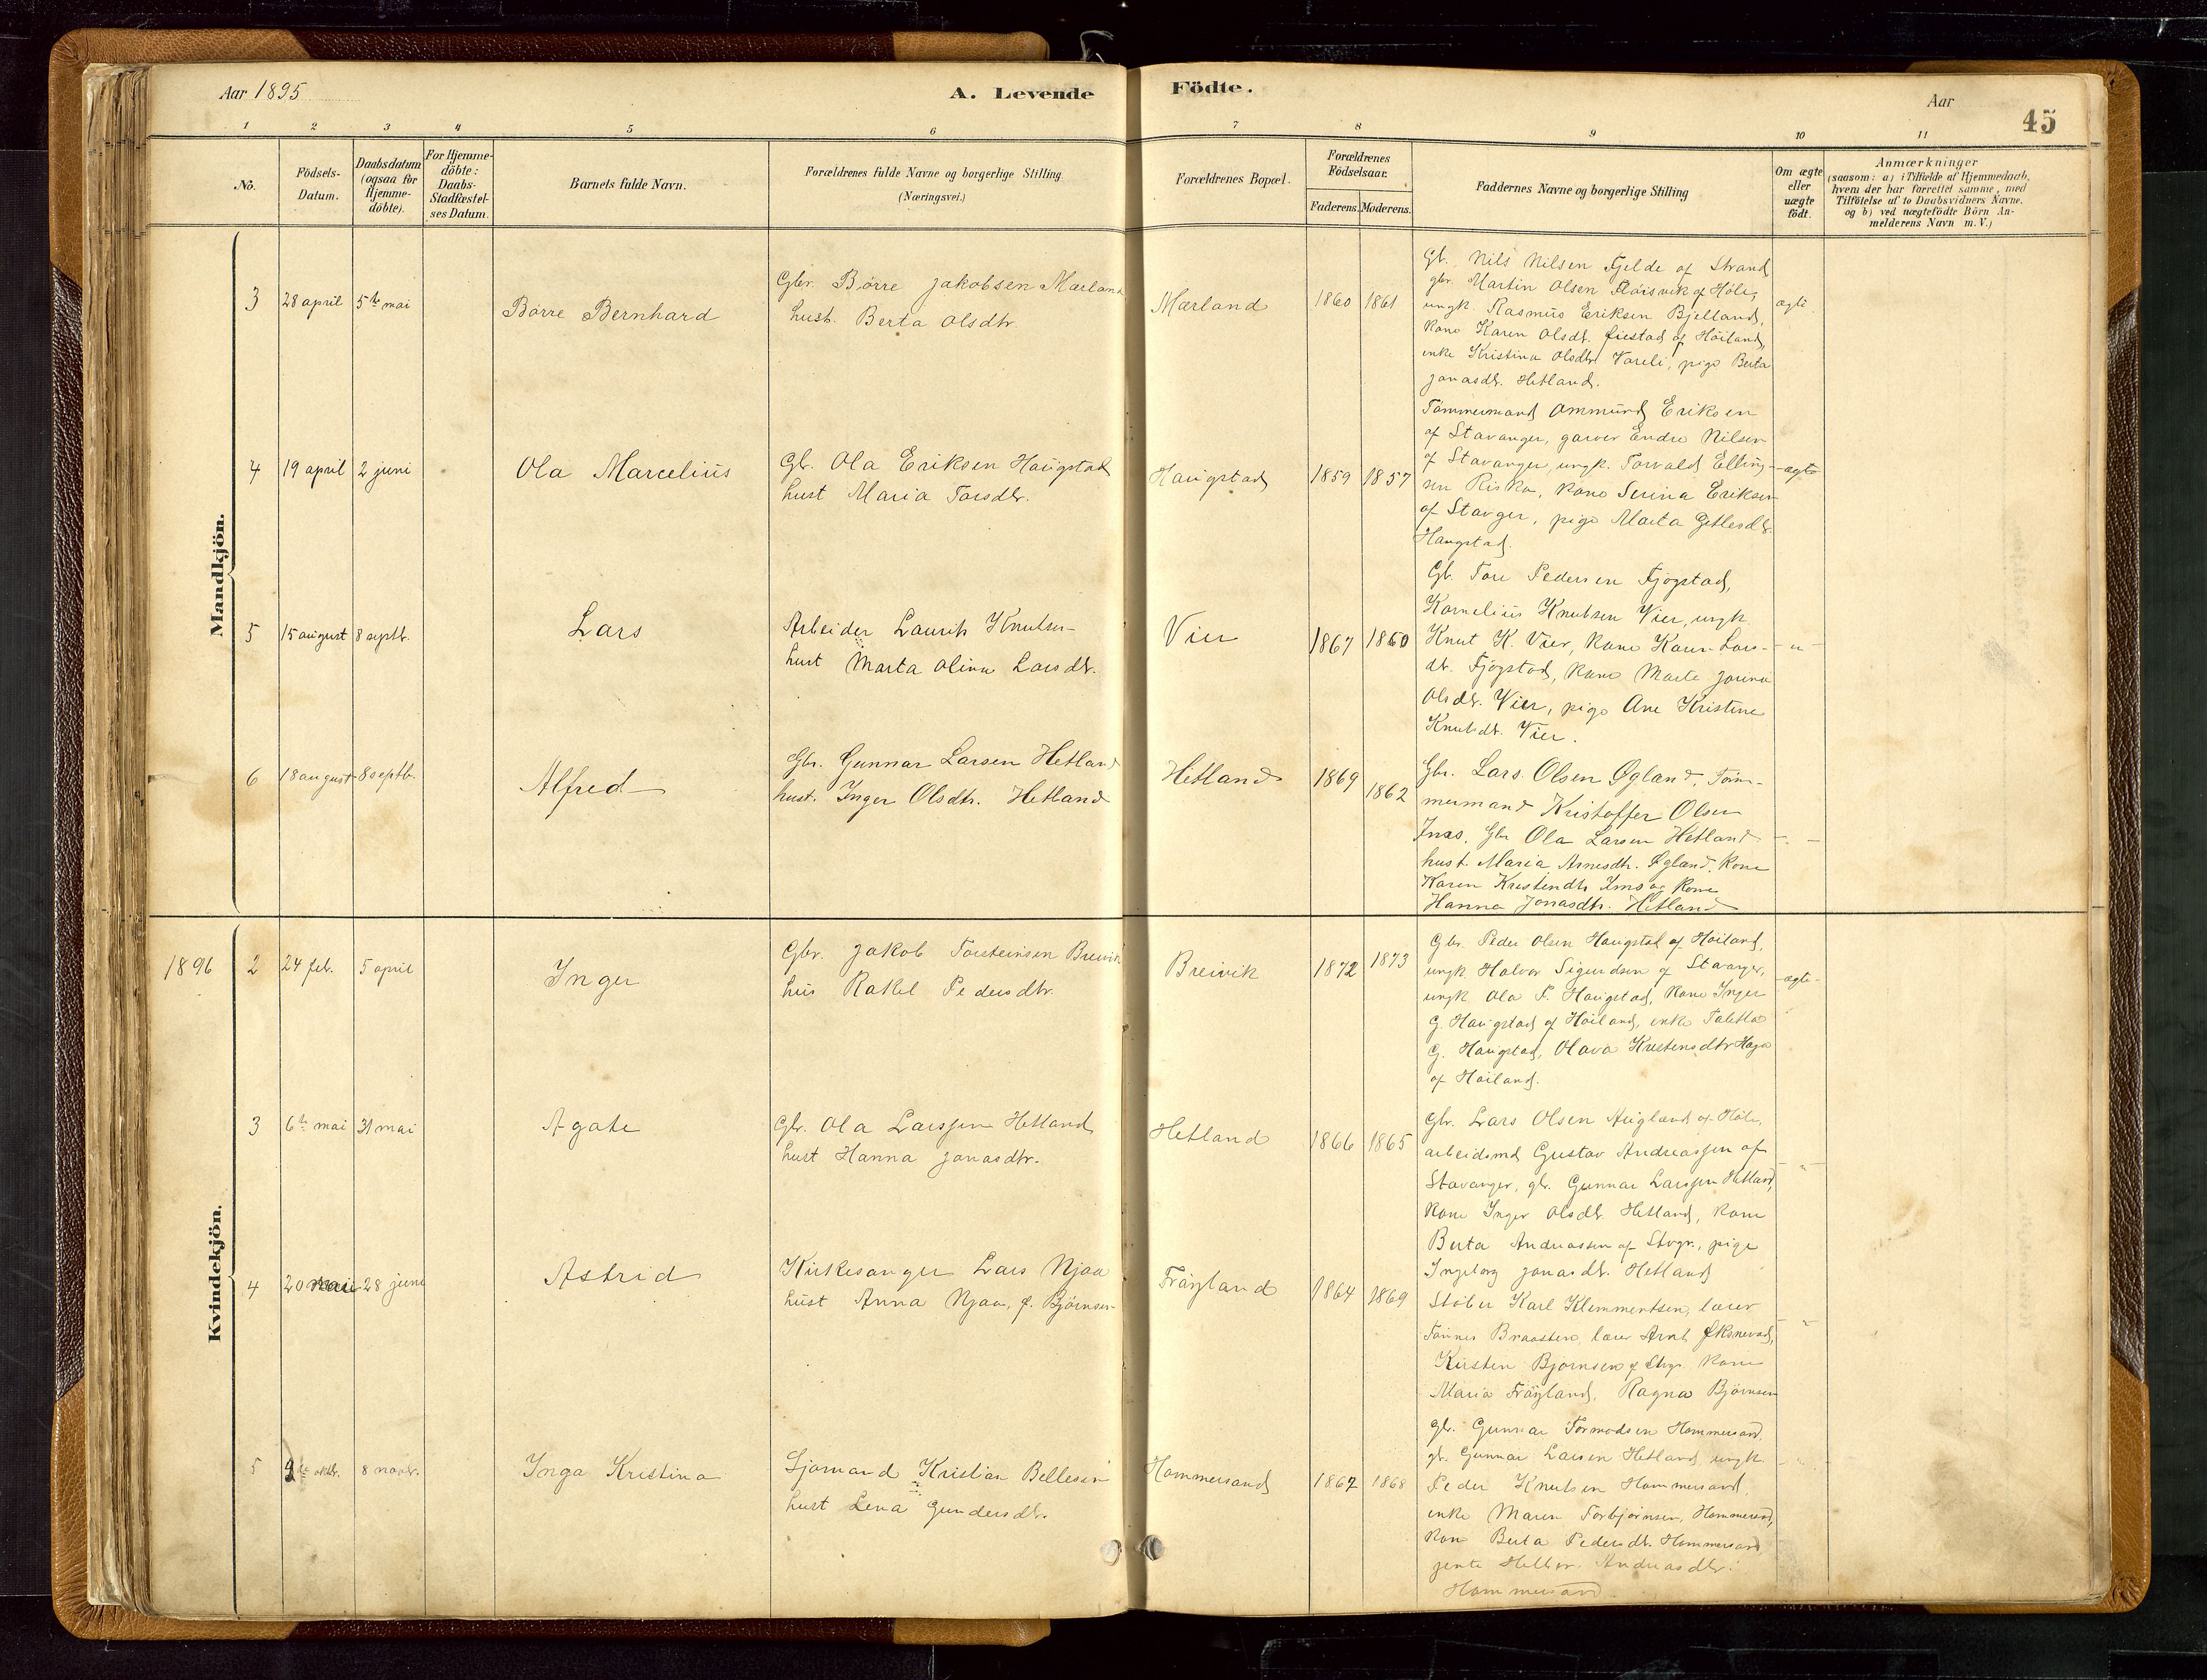 Aar 1895
A. Levende Födte.
Aar
45
1 2 3 4 5 6 7 8 9 10 11
No.
Födsels-
Datum.
Daabsdatum
(ogsaa for
Hjemme-
döbte).
For Hjemme-
döbte:
Daabs-
Stadfæstel-
ses Datum.
Barnets fulde Navn.
Forældrenes fulde Navne og borgerlige Stilling
(Næringsvei.)
Forældrenes Bopæl.
Forældrenes
Födselsaar.
Faderens.
Moderens.
Faddernes Navne og borgerlige Stilling
Om ægte
eller
uægte
födt.
Anmærkninger
(saasom: a) i Tilfælde af Hjemmedaab,
hvem der har forrettet samme, med
Tilföielse af to Daabsvidners Navne,
og b) ved uægtefödte Börn An-
melderens Navn m.V.)
Mandkjön.
3
28 april
5te mai
Börre Bernhard
Gbr. Börre Jakobsen Mærland
hust. Berta Olsdtr.
Mærland
1860
1861
Gb. Nils Nilsen Fjelde af Strand
gbr. Martin Olsen af Höle,
ungk. Rasmus Eriksen Bjelland,
kone Karen Olsdt. af Höiland,
enke Kristina Olsdtr. Vareli, pige Berta
Jonasdt. Hetland.
ægte.
4
19 april
2 juni
Ola Marcelius
Gb. Ola Eriksen Haugstad
hust Maria Torsdtr.
Haugstad
1859
1857
Tömmermand Ommund Eriksen
af Stavanger, garver Endre Nilsen
af Stavanger, ungk. Torvald Elling-
sen Riska, kone Serina Eriksen
af Stavger, pige Marta
Haugstad.
ægte
5
15 august
8 septb.
Lars
Arbeider Laurits Knutsen
hust Marta Olina Larsdt.
Vier
1867
1860
Gb. Tore Pedersen Fjögstad,
Kornelius Knutsen Vier, ungk
Knut K. Vier, kone Karen Lars-
dt. Fjögstad, kone Marte Jorina
Olsdt. Vier, pige Ane Kristine
Knutsdt. Vier.
- " -
6
18 august
8 septb.
Alfred
Gbr. Gunnar Larsen Hetland
hust. Inger Olsdtr. Hetland
Hetland
1869
1862
Gbr. Lars Olsen Øgland, Töm-
mermand Kristoffer Olsen
Imss, Gbr Ola Larsen Hetland
hust. Maria Arnesdtr. Øgland, kone
Karen Kristendtr Ims og kone
Hanna Jonasdtr. Hetland
- " -
Kvindekjön.
1896
2
24 feb.
5 april
Inger
Gbr. Jakob Torsteinsen Breivik
hus Rakel Pedersdtr.
Breivik
1872
1873
Gbr. Peder Olsen Haugstad af Höiland,
ungk. Halvor Sigurdsen af Stavanger,
ungk. Ola P. Haugstad, kone Inger
G. Haugstad af Höiland, enke Taletta
G. Haugstad, Olava Kristensdtr Haga
af Höiland.
ægte
3
6te mai
31 mai
Agate
Gb. Ola Larssen Hetland
hust Hanna Jonasdtr.
Hetland
1866
1865
Gbr. Lars Olsen Augland af Höle,
arbeidsmd Gustav Andreassen af
Stavanger, gb. Gunnar Larssen Hetland,
kone Inger Olsdt. Hetland, kone
Berta Andreassen af Stvgr., pige
Ingeborg Jonasdt. Hetland
- " -
4
20 mai
28 juni
Astrid
Kirkesanger Lars Njaa
hust Anna Njaa, f. Björnsen
Fröyland
1864
1869
Stöber Karl Klemmentsen, lærer
Tönnes Braasten, lærer Arnt Øksnevad,
Kirsten Björnsen af Stvgr. kone
Maria Fröyland, Ragna Björnsen
- " -
5
9de oktb.
8 novbr.
Inga Kristina
Sjömand Kristian Bellesen
hust Lena Gundersdt.
Hommersand
1867
1868
gb. Gunnar Tormodsen Hommersand,
gb. Gunnar Larsen Hetland, ungk.
Peder Knutsen Hommersand,
enke Maren Torbjörnsen, Hommersand,
kone Berta Pedersdt. Hommersand
jente Andreasdtr.
Hommersand
- " -